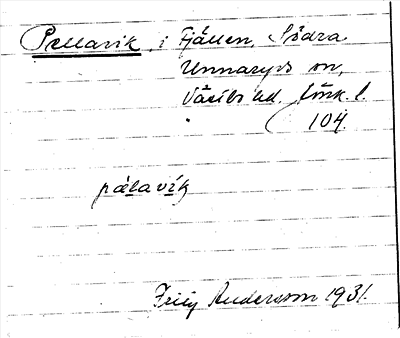 Pellavik, i Fjällen, Södra
Unnaryds sn,
Västbo hd, Jönk. l.
104.
pálavík
Anderson 1931.